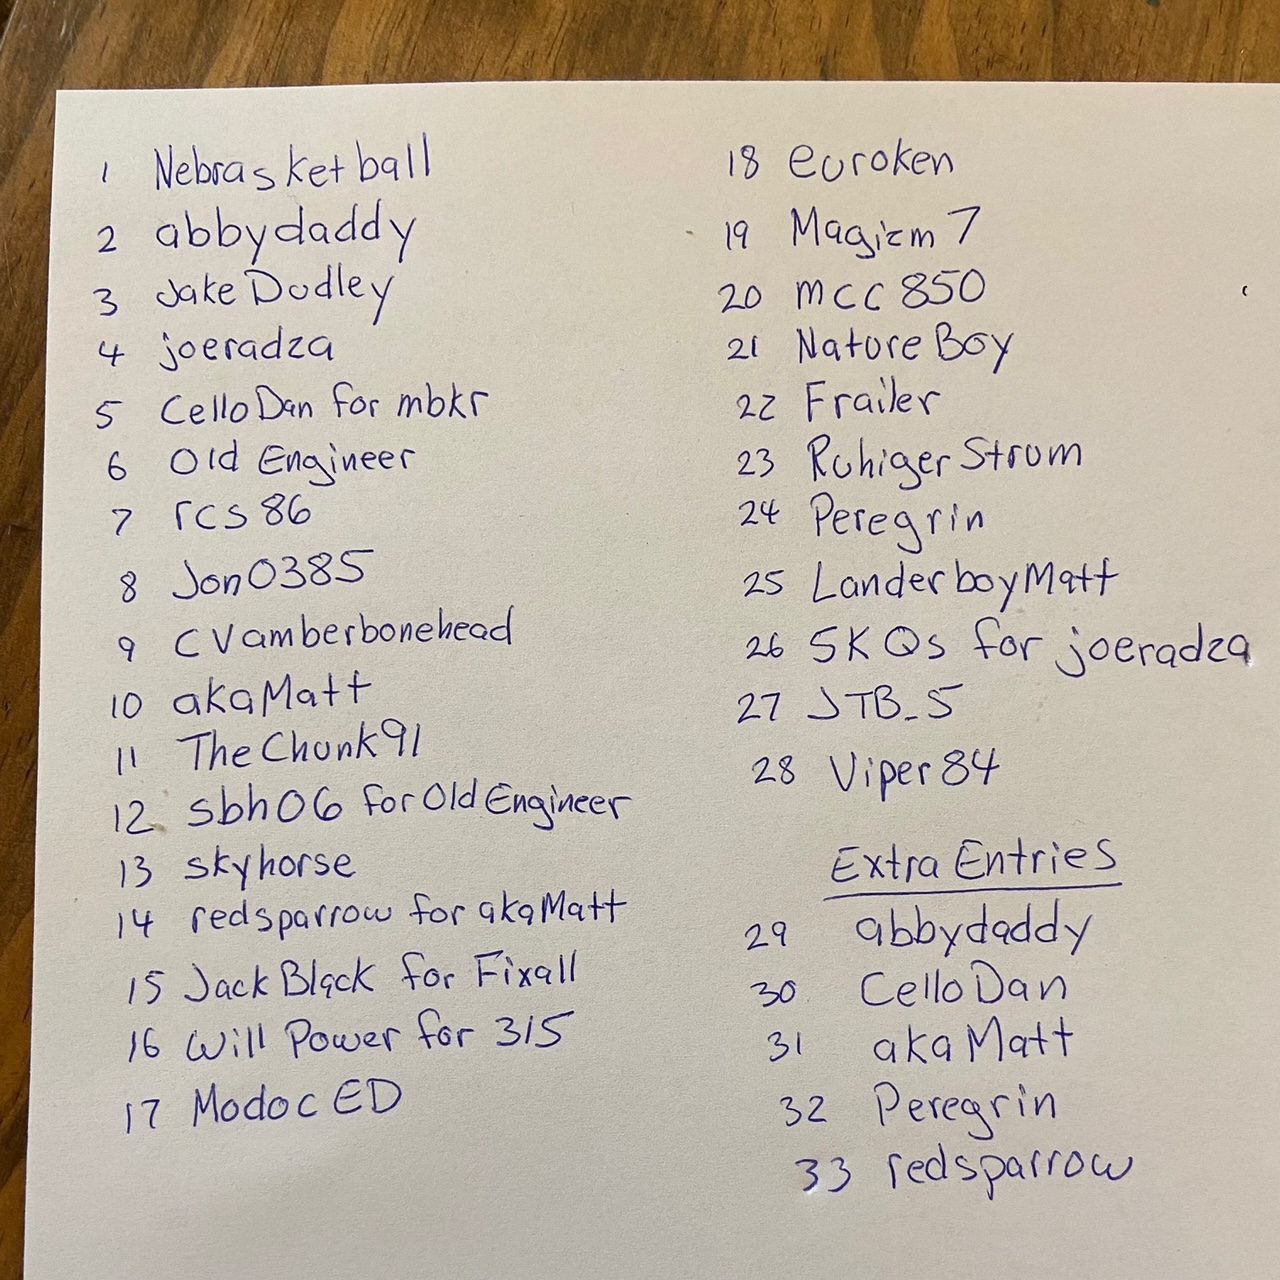 1 Nebrasketball
2 abbydaddy
3 Jake Dudley
4 joeradza
5 Cello Dan for mbkr
6 Old Engineer
7 rcs86
8 Jon0385
9 CVamberbonehead
10 akaMatt
11 The Chunk91
12 sbh06 for Old Engineer
13 skyhorse
14 redsparrow for akaMatt
15 Jack Black for Fixall
16 Will Power for 315
17 Modoc ED
18 euroken
19 Magizm7
20 mcc850
21 Nature Boy
22 Frailer
23 Ruhiger Strom
24 Peregrin
25 LanderboyMatt
26 5KQs for joeradza
27 JTB_5
28 Viper84
Extra Entries
29 abbydaddy
30 Cello Dan
31 akaMatt
32 Peregrin
33 redsparrow